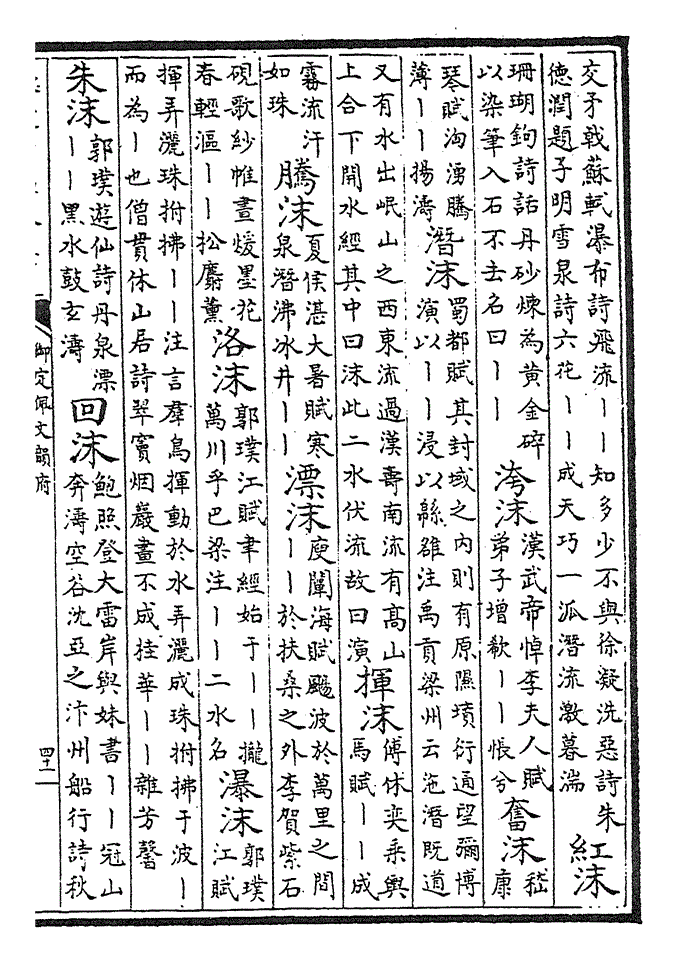 交矛戟蘇軾瀑布詩飛流丨丨知多少不與徐凝洗惡詩朱
德潤題子明雪泉詩六花丨丨成天巧一泒潛流激暮湍
紅沫
珊瑚鉤詩話丹砂煉為黃金碎
以染筆入石不去名曰丨丨
洿沫
漢武帝悼李夫人賦
弟子增欷丨丨悵兮
奮沫
嵇
康
琴賦洶湧騰
薄丨丨揚濤
潛沫
蜀都賦其封域之內則有原隰墳衍通望彌博
演以丨丨浸以緜雒注禹貢梁州云沲潛既道
又有水出岷山之西東流過漢壽南流有高山
上合下開水經其中曰沫此二水伏流故曰演
揮沫
傅休奕乘輿
馬賦丨丨成
霧流汗
如珠
騰沫
夏侯湛大暑賦寒
泉潛沸冰井丨丨
漂沫
庾闡海賦颺波於萬里之間
丨丨於扶桑之外李賀紫石
硯歌紗帷晝煖墨花
春輕漚丨丨松麝薰
洛沫
郭璞江賦聿經始于丨丨攏
萬川乎巴梁注丨丨二水名
瀑沫
郭璞
江賦
揮弄灑珠拊拂丨丨注言羣鳥揮動於水弄灑成珠拊拂于波丨
而為丨也僧貫休山居詩翠竇烟巖畫不成桂華丨丨雜芳馨
朱沫
郭璞遊仙詩丹泉漂
丨丨黑水鼓玄濤
回沫
鮑照登大雷岸與妹書丨丨冠山
奔濤空谷沈亞之汴州船行詩秋
御定佩文韻府
四十一